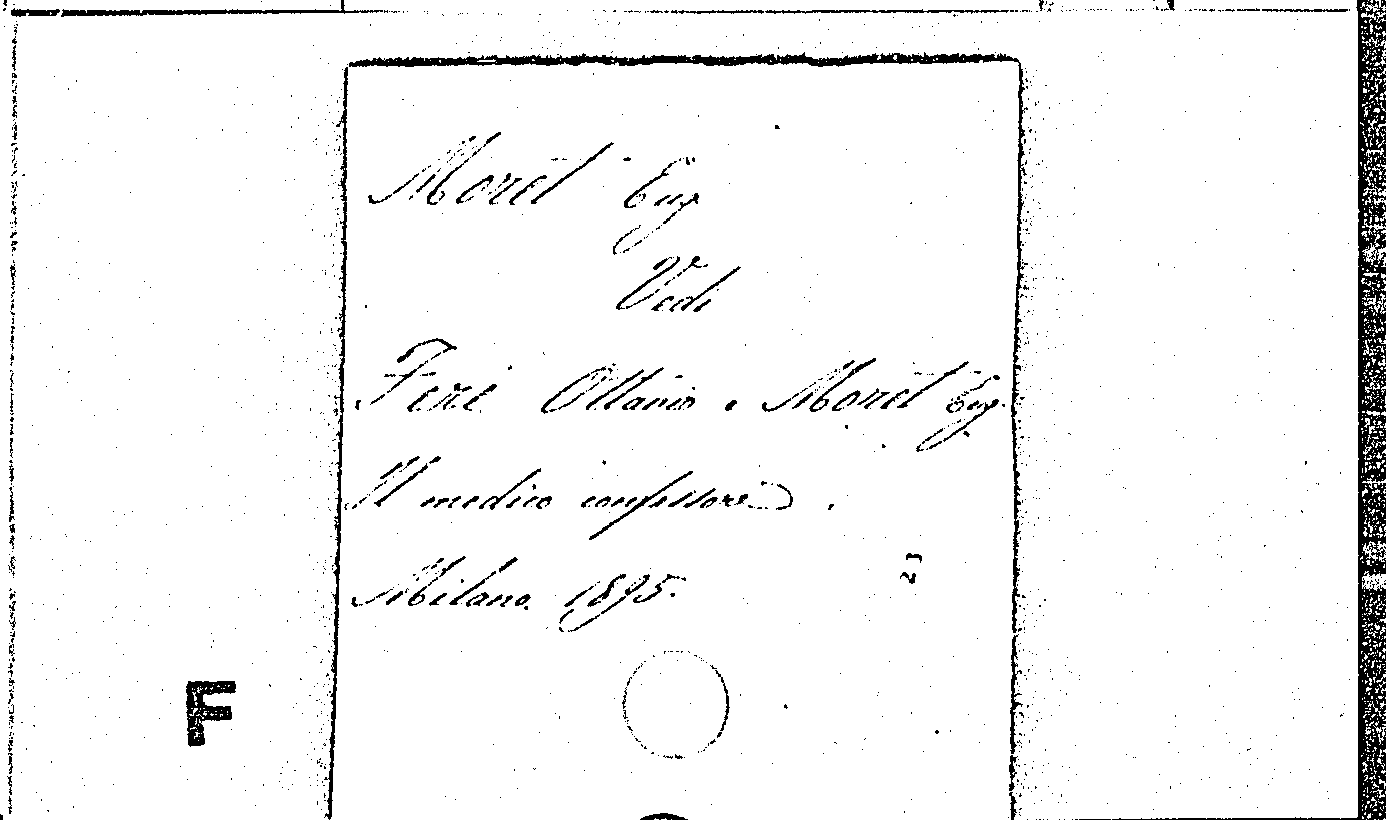 Morèt Eug
Vedi
Feré Ottavio e Morèt Eug.
Il medico confessore.
Milano. 1895.
23
F